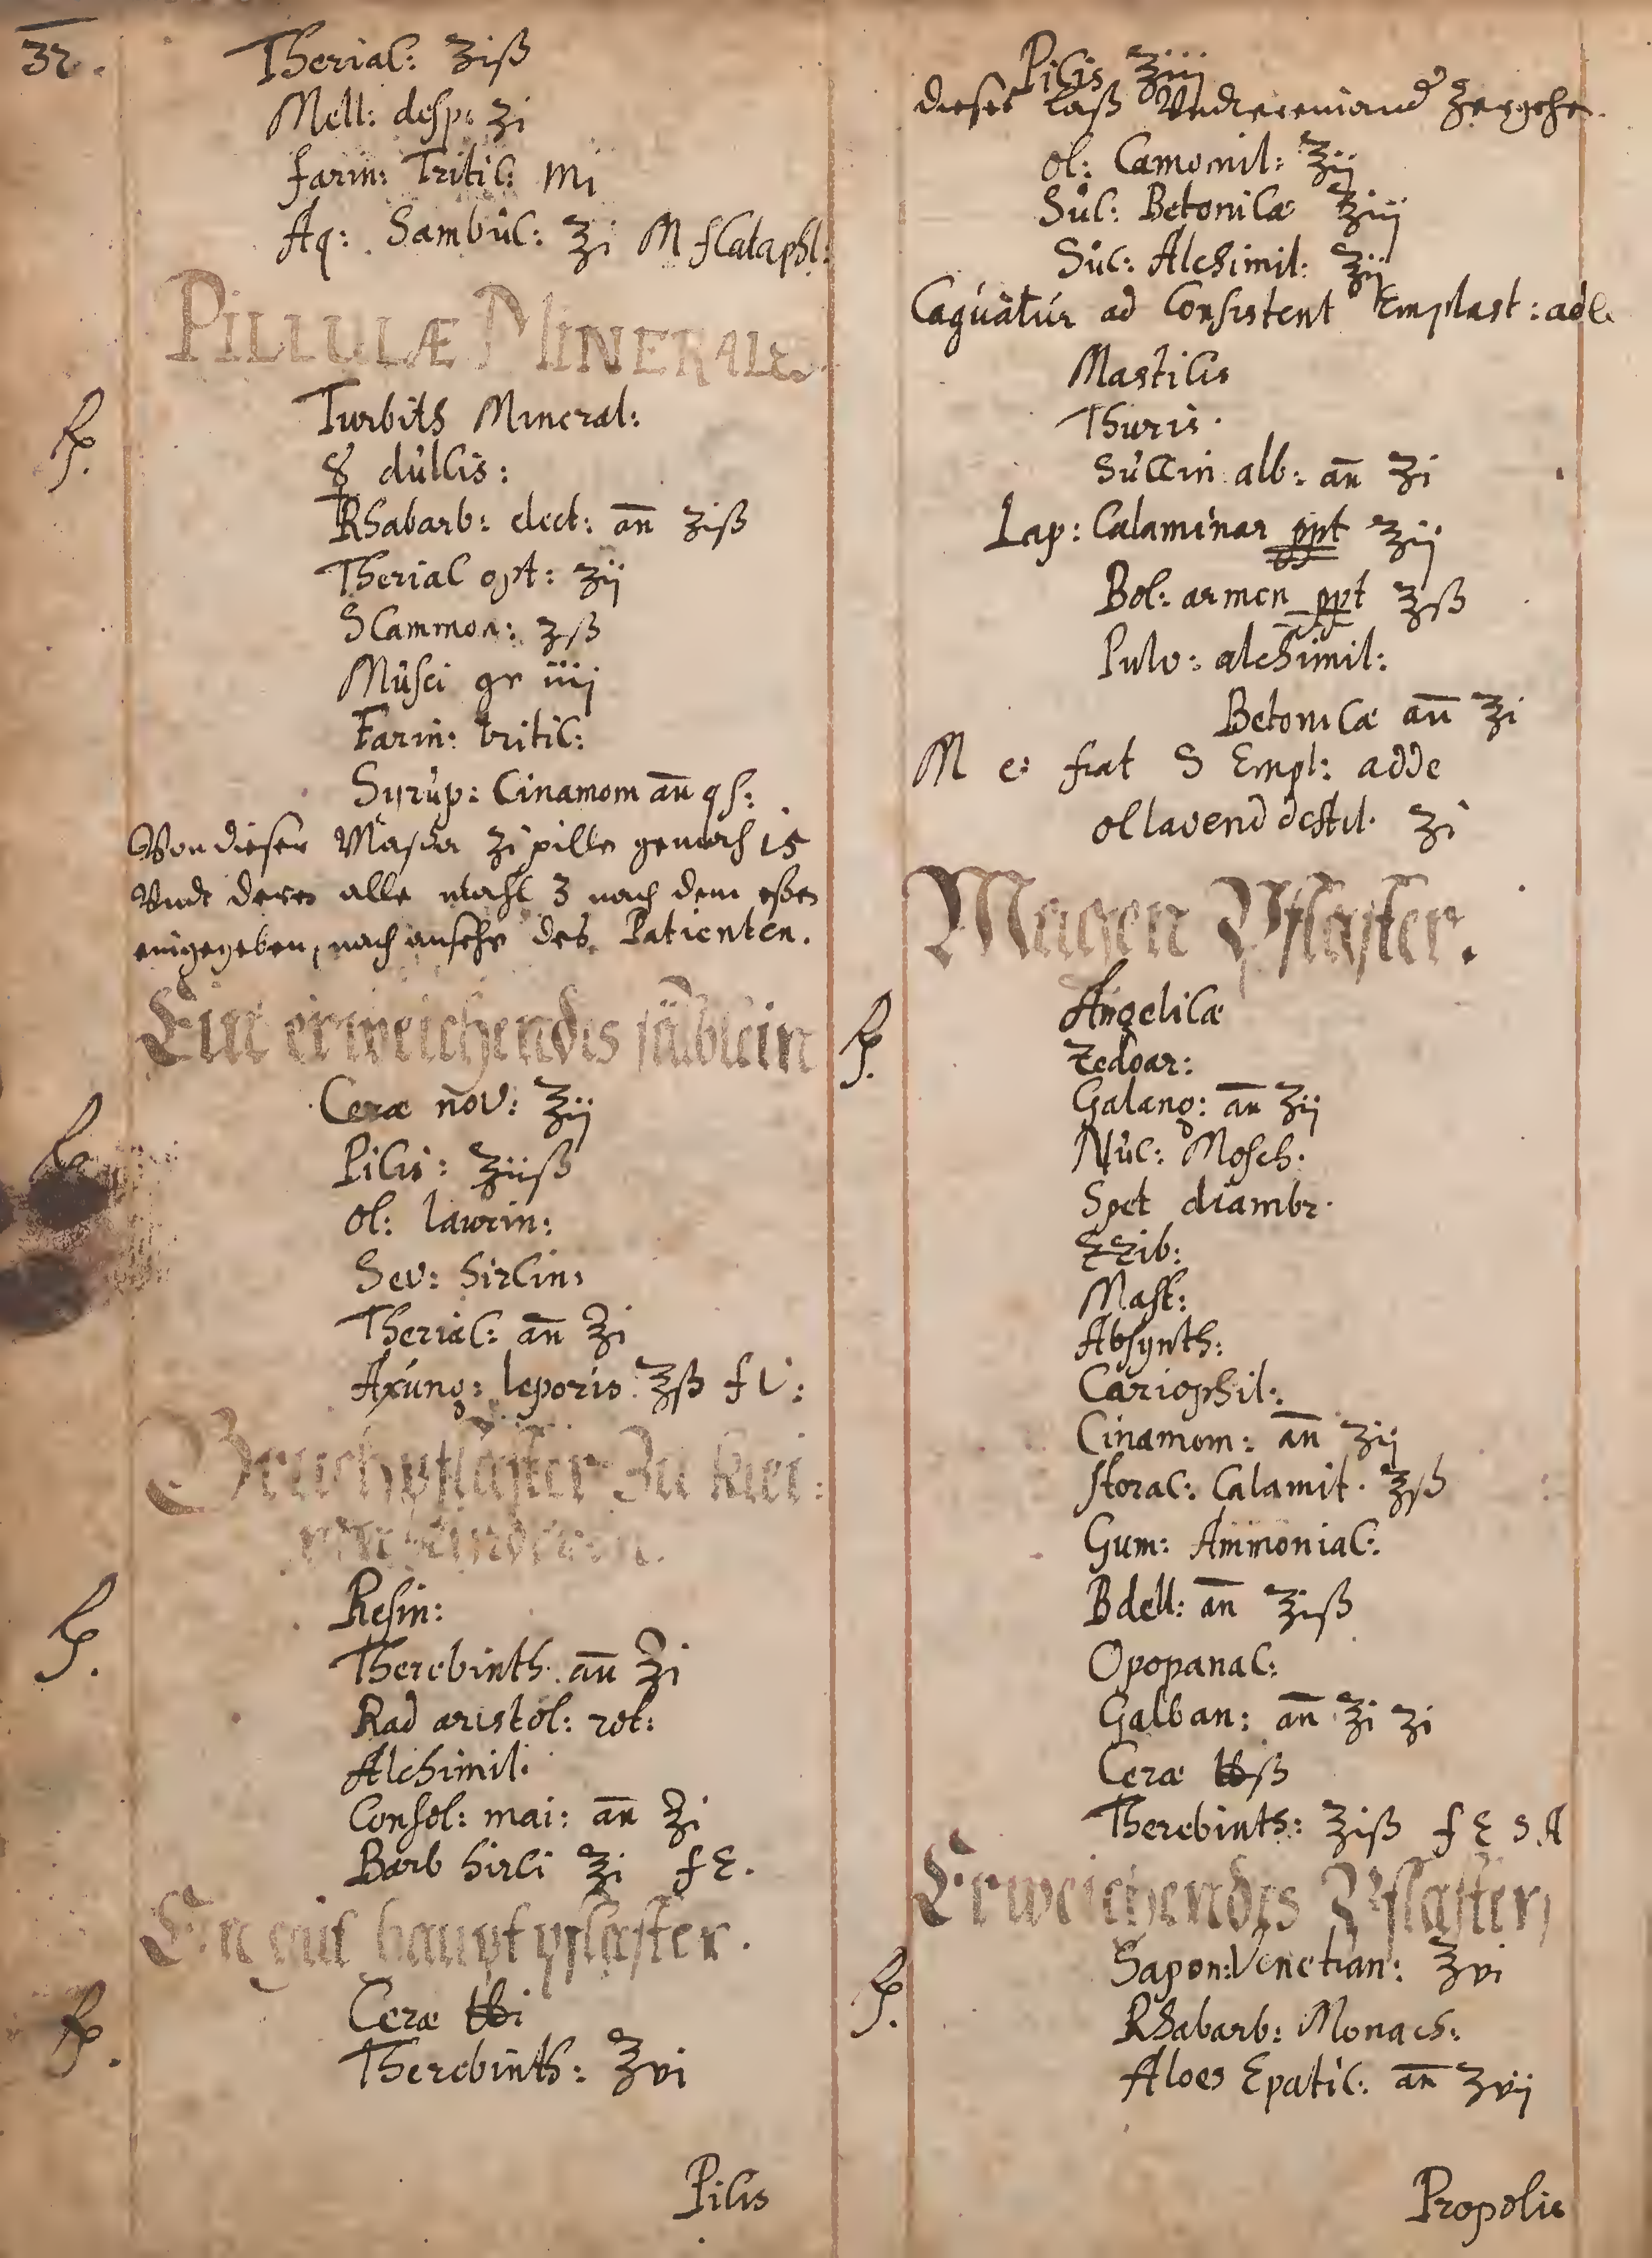 32.
Therial: ʒiß
Mell: desp: ʒi
farin: Tritic: Mi
Aq: Sambůc: ℥i M f Cataphl:
PILLULÆ MINERALes
℞. Turbith Mineral:
☿ důlcis:
Rhabarb: elect: an̄ ʒiß
Therial opt: ʒij
Scammon: ʒß
Můsci gr iiij
Farin: tritic:
Syrůp: Cinamom an̄ qs:
Von dieser Massa ʒi pille gemach 15
Undt deren alle mahl 3 nach dem eßen
eingegeben, nach ansehe des Patienten.
Ein erweichendes sälblein
℞. Ceræ nov: ℥ij
Picis: ℥iiß
ol: laurin:
Sev: hircin:
Therial: an̄ ℥i
Axúng: leporis ℥ß f U:
Bruchpflaster Zu klei:
nen kinderen.
℞. Resin:
Therebinth: an̄ ℥i
Rad aristol: rot:
Alchimil:
Consol: mai: an̄ ℥i
Barb hirci ℥i f E.
Ein gut hauptpflaster.
℞. Ceræ ℔i
Therebinth: ℥vi
Picis
Picis ℥iii
dieses laß Undtereinand zergehen.
ol: Camomil: ℥ij
Sůc: Betonicæ ℥iij
Sůc: Alchimil: ℥ij
Caquâtúr ad Consistent Emplast: adde
Masticis
Thuris.
Sůccin alb: an̄ ℥i
Lap: Calaminar ppt ℥ij
Bol: armen ppt ℥ß
Pulv: alchimil:
Betonicæ an̄ ℥i
M e: fiat S Empl: adde
ol lavend destil. ℥i
Magen Pflaster.
℞. Angelicæ
Zedoar:
Galang: an̄ ʒij
Nůc: Mosch:
Spet diambr.
ZZib:
Mast:
Absynth:
Cariophil:
Cinamom: an̄ ʒij
storac: Calamit. ℥ß
Gum: Ammoniac:
Bdell: an̄ ℥iß
Opopanac:
Galban: an̄ ℥i ʒi
Ceræ ℔ß
Therebinth: ℥iß f E S.A
Erweichendes Pflaster,
℞. Sapon: Venetian: ℥vi
Rhabarb: Monach:
Aloes Epatic: an̄ ʒvij
Propolis